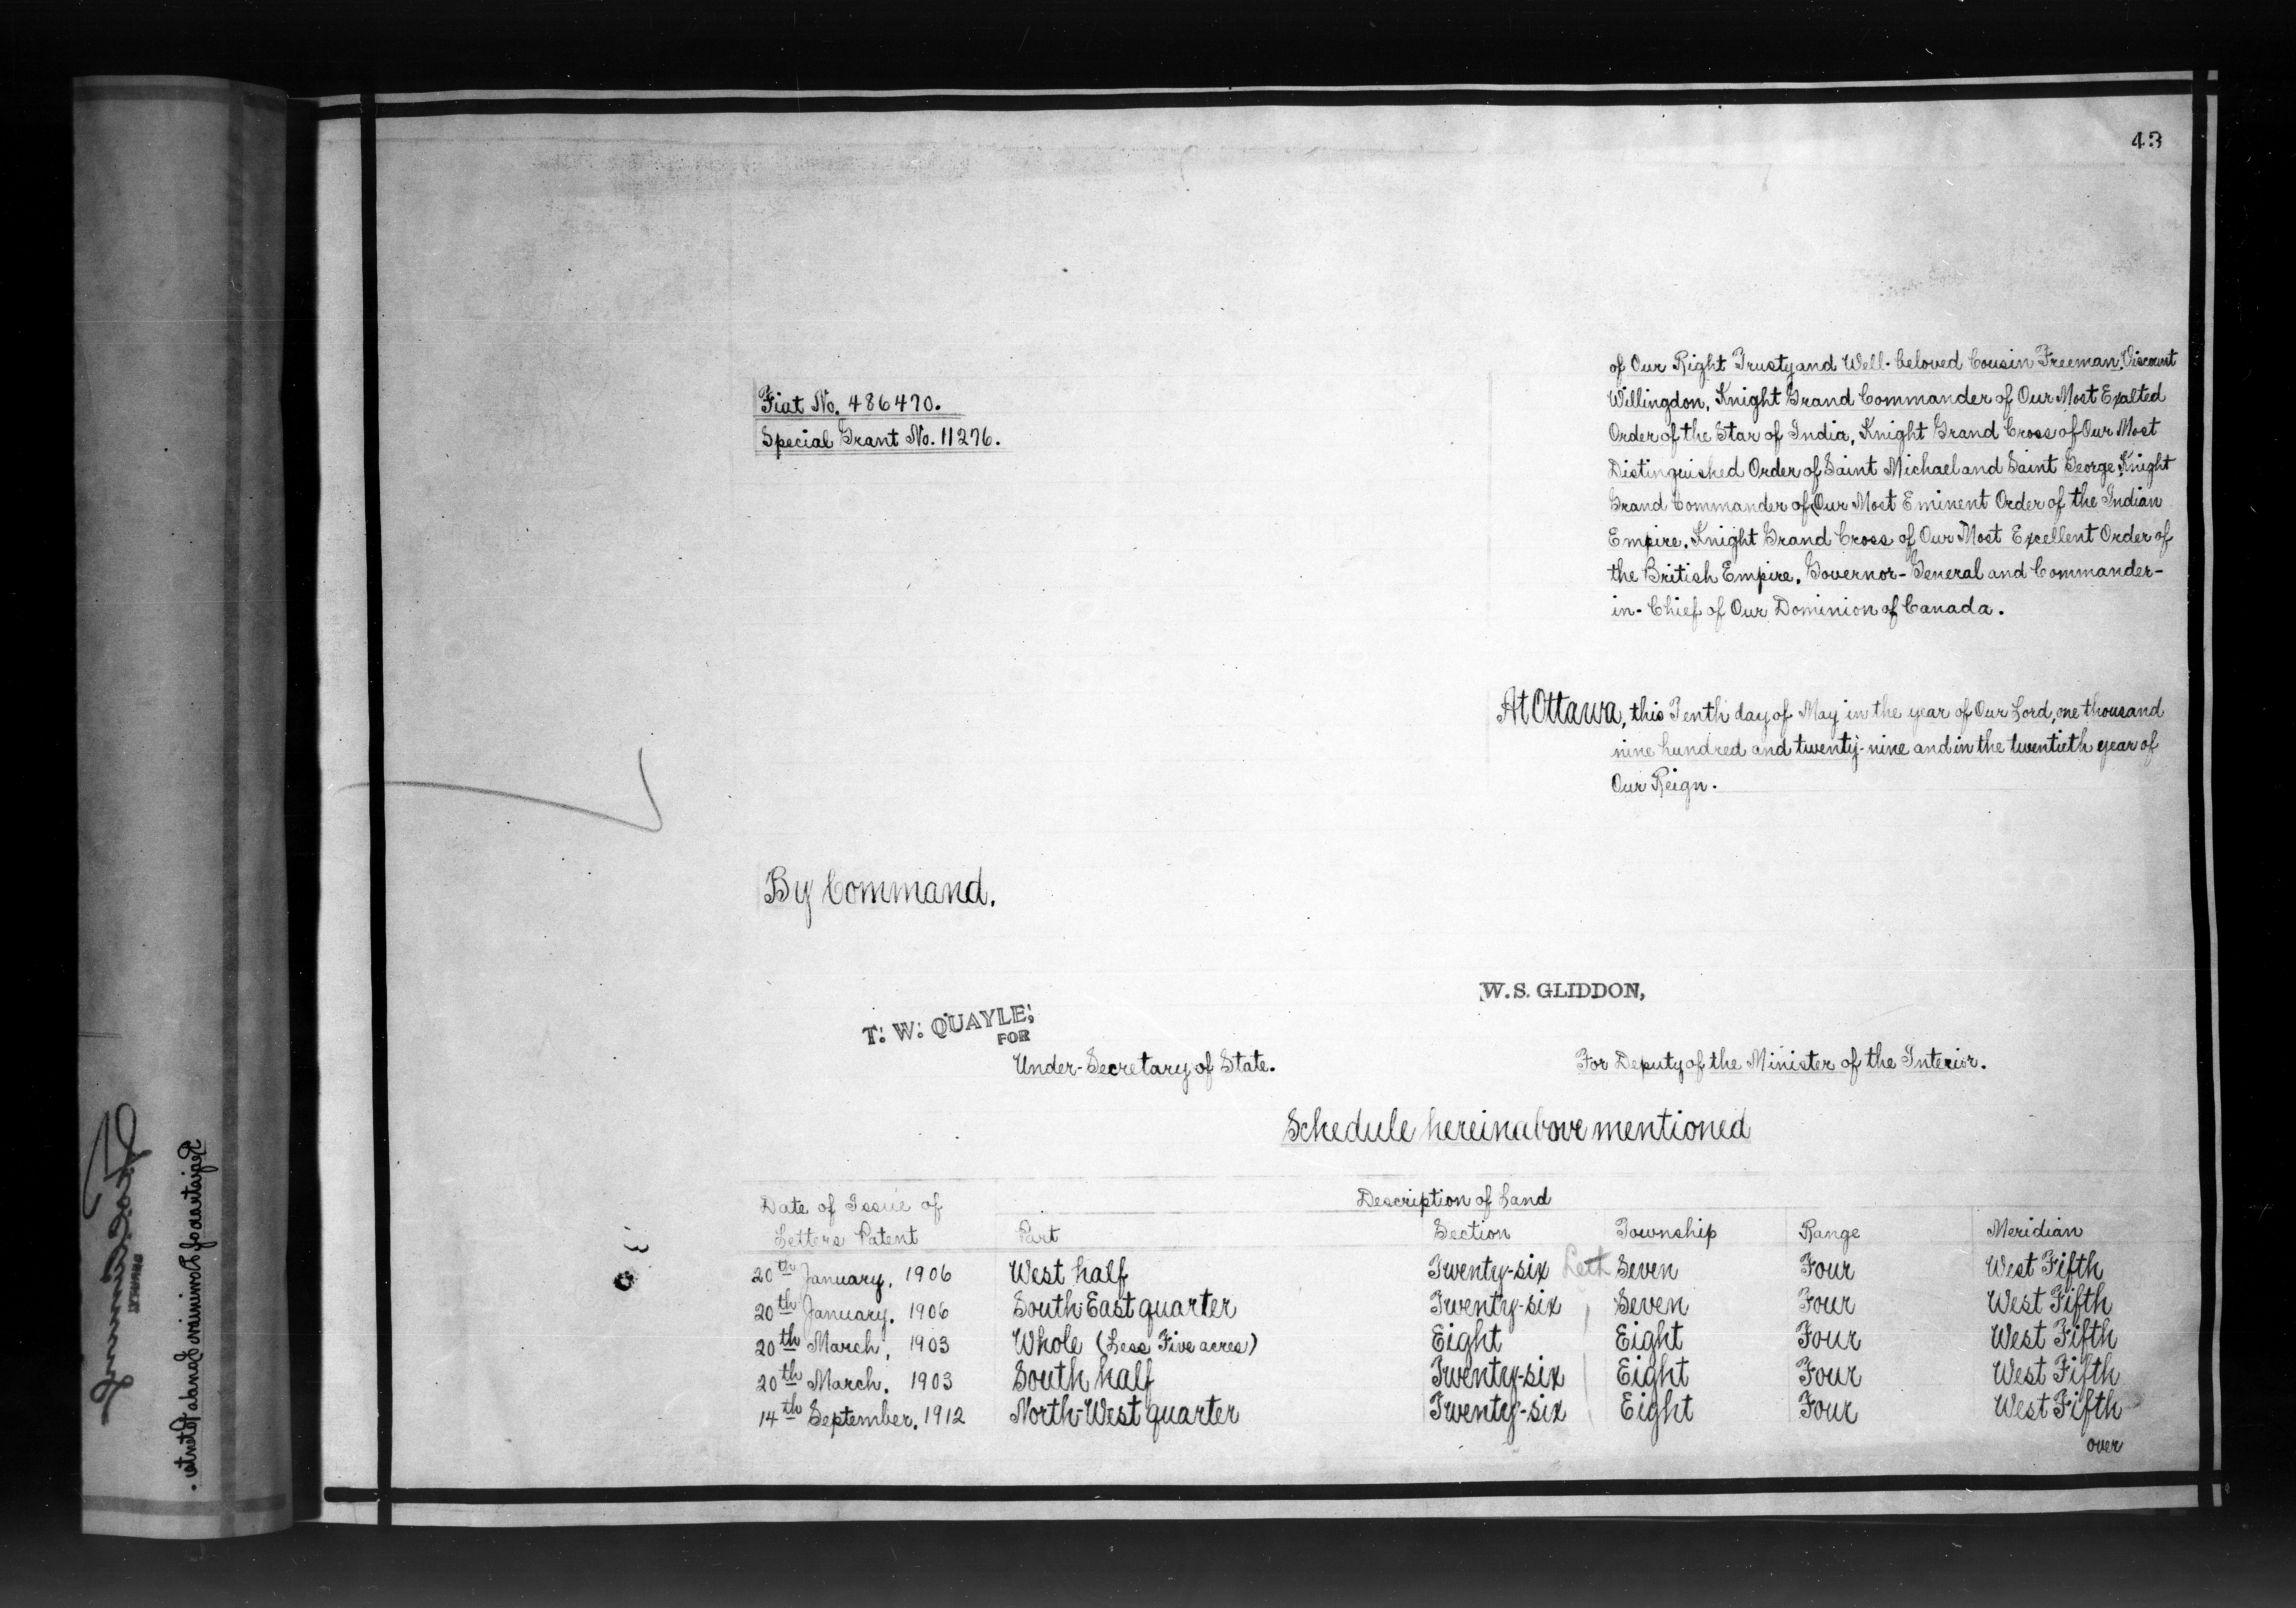 43
Fiat No. 486470.
Special Grant No. 11276.
of Our Right Trusty and Well-beloved Cousin Freeman, Viscount
Willingdon, Knight Grand Commander of Our Most Exalted
Order of the Star of India, Knight Grand Cross of Our Most
Distinguished Order of Saint Michael and Saint George, Knight
Grand Commander of Our Most Eminent Order of the Indian
Empire, Knight Grand Cross of Our Most Excellent Order of
the British Empire, Governor-General and Commander-
in-Chief of Our Dominion of Canada.
At Ottawa, this Tenth day of May in the year of Our Lord, one thousand
nine hundred and twenty-nine and in the twentieth year of
Our Reign.
By Command.
W. S. GLIDDON,
T. W. QUAYLE,
FOR
Under-Secretary of State.
For Deputy of the Minister of the Interior.
Schedule hereinabove mentioned
Date of Issue of Letters Patent
Description of Land
Part Section Township Range Meridian
20th January, 1906 West half Twenty-six Leth Seven Four West Fifth
20th January, 1906 South East quarter Twenty-six Seven Four West Fifth
20th March, 1903 Whole (Less Five acres) Eight Eight Four West Fifth
20th March, 1903 South half Twenty-six Eight Four West Fifth
14th September, 1912 North-West quarter Twenty-six Eight Four West Fifth
over
Registrar of Dominion Lands Patents.